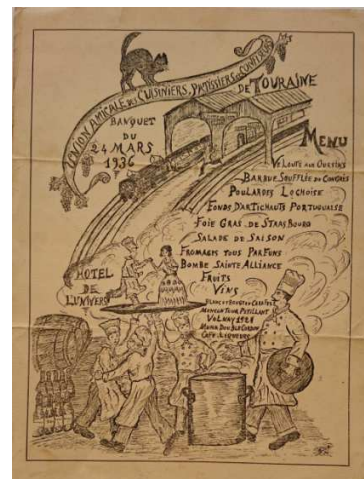 UNION AMICALE DES CUISINIERS, PATISSIERS & CONFISEURS
DE TOURAINE
BANQUET
DU
24 MARS
1936
MENU
VELOUTÉ AUX OURSINS
BARBUE SOUFFLÉE DU CONGRÈS
POULARDES LOCHOISE
FONDS D'ARTICHAUTS PORTUGUAISE
FOIE GRAS DE STRASBOURG
SALADE DE SAISON
FROMAGES TOUS PARFUMS
BOMBE SAINTE ALLIANCE
FRUITS
VINS
MONCONTOUR PÉTILLANT
VOLNAY 1926
CAFÉ LIQUEURS
HOTEL
DE
L'UNIVERS